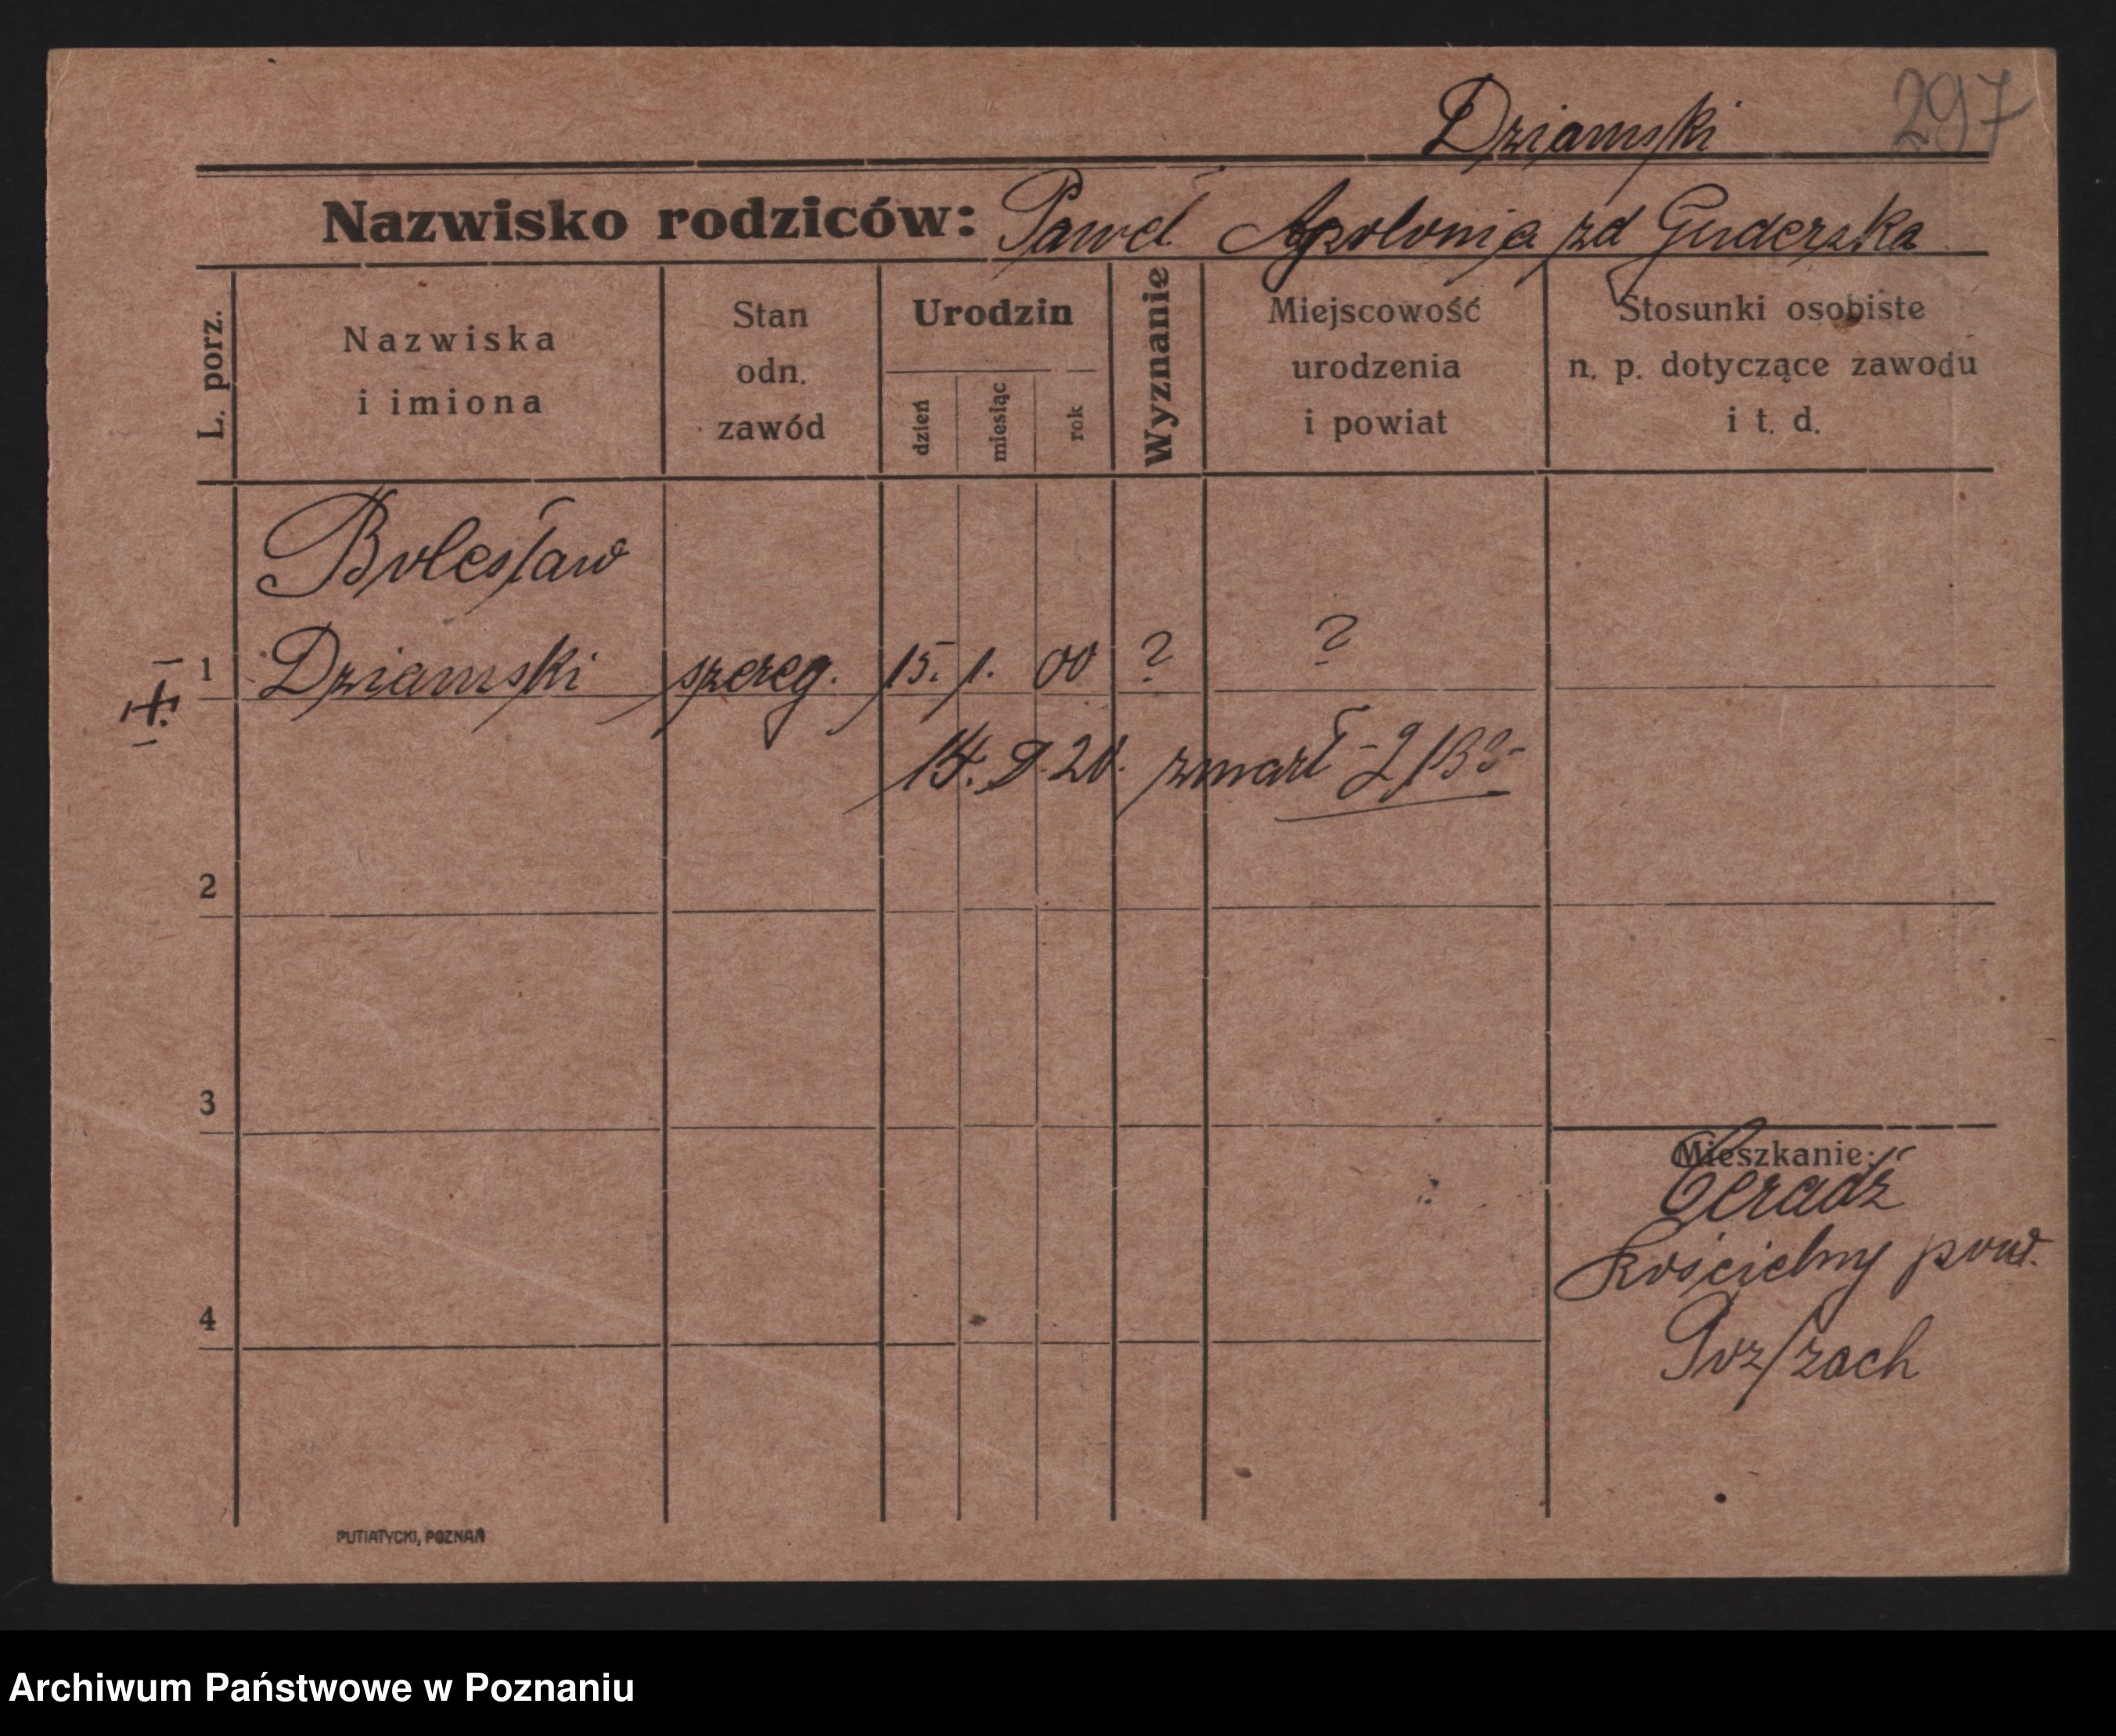 297
Dziamski
Nazwisko rodziców: Paweł Apolonja zd Guderska
L. porz.
Nazwiska i imiona
Stan odn. zawód
Urodzin
dzień
miesiąc
rok
Wyznanie
Miejscowość urodzenia i powiat
Stosunki osobiste n. p. dotyczące zawodu i t. d.
Bolesław
1 Dziamski szereg. 15. 1. 00 ? ?
14. 9. 20. zmarł - 2/133 -
2
3
4
Mieszkanie:
Ceradz
Kościelny pow.
Poz/zach
PUTIATYCKI, POZNAŃ
Archiwum Państwowe w Poznaniu